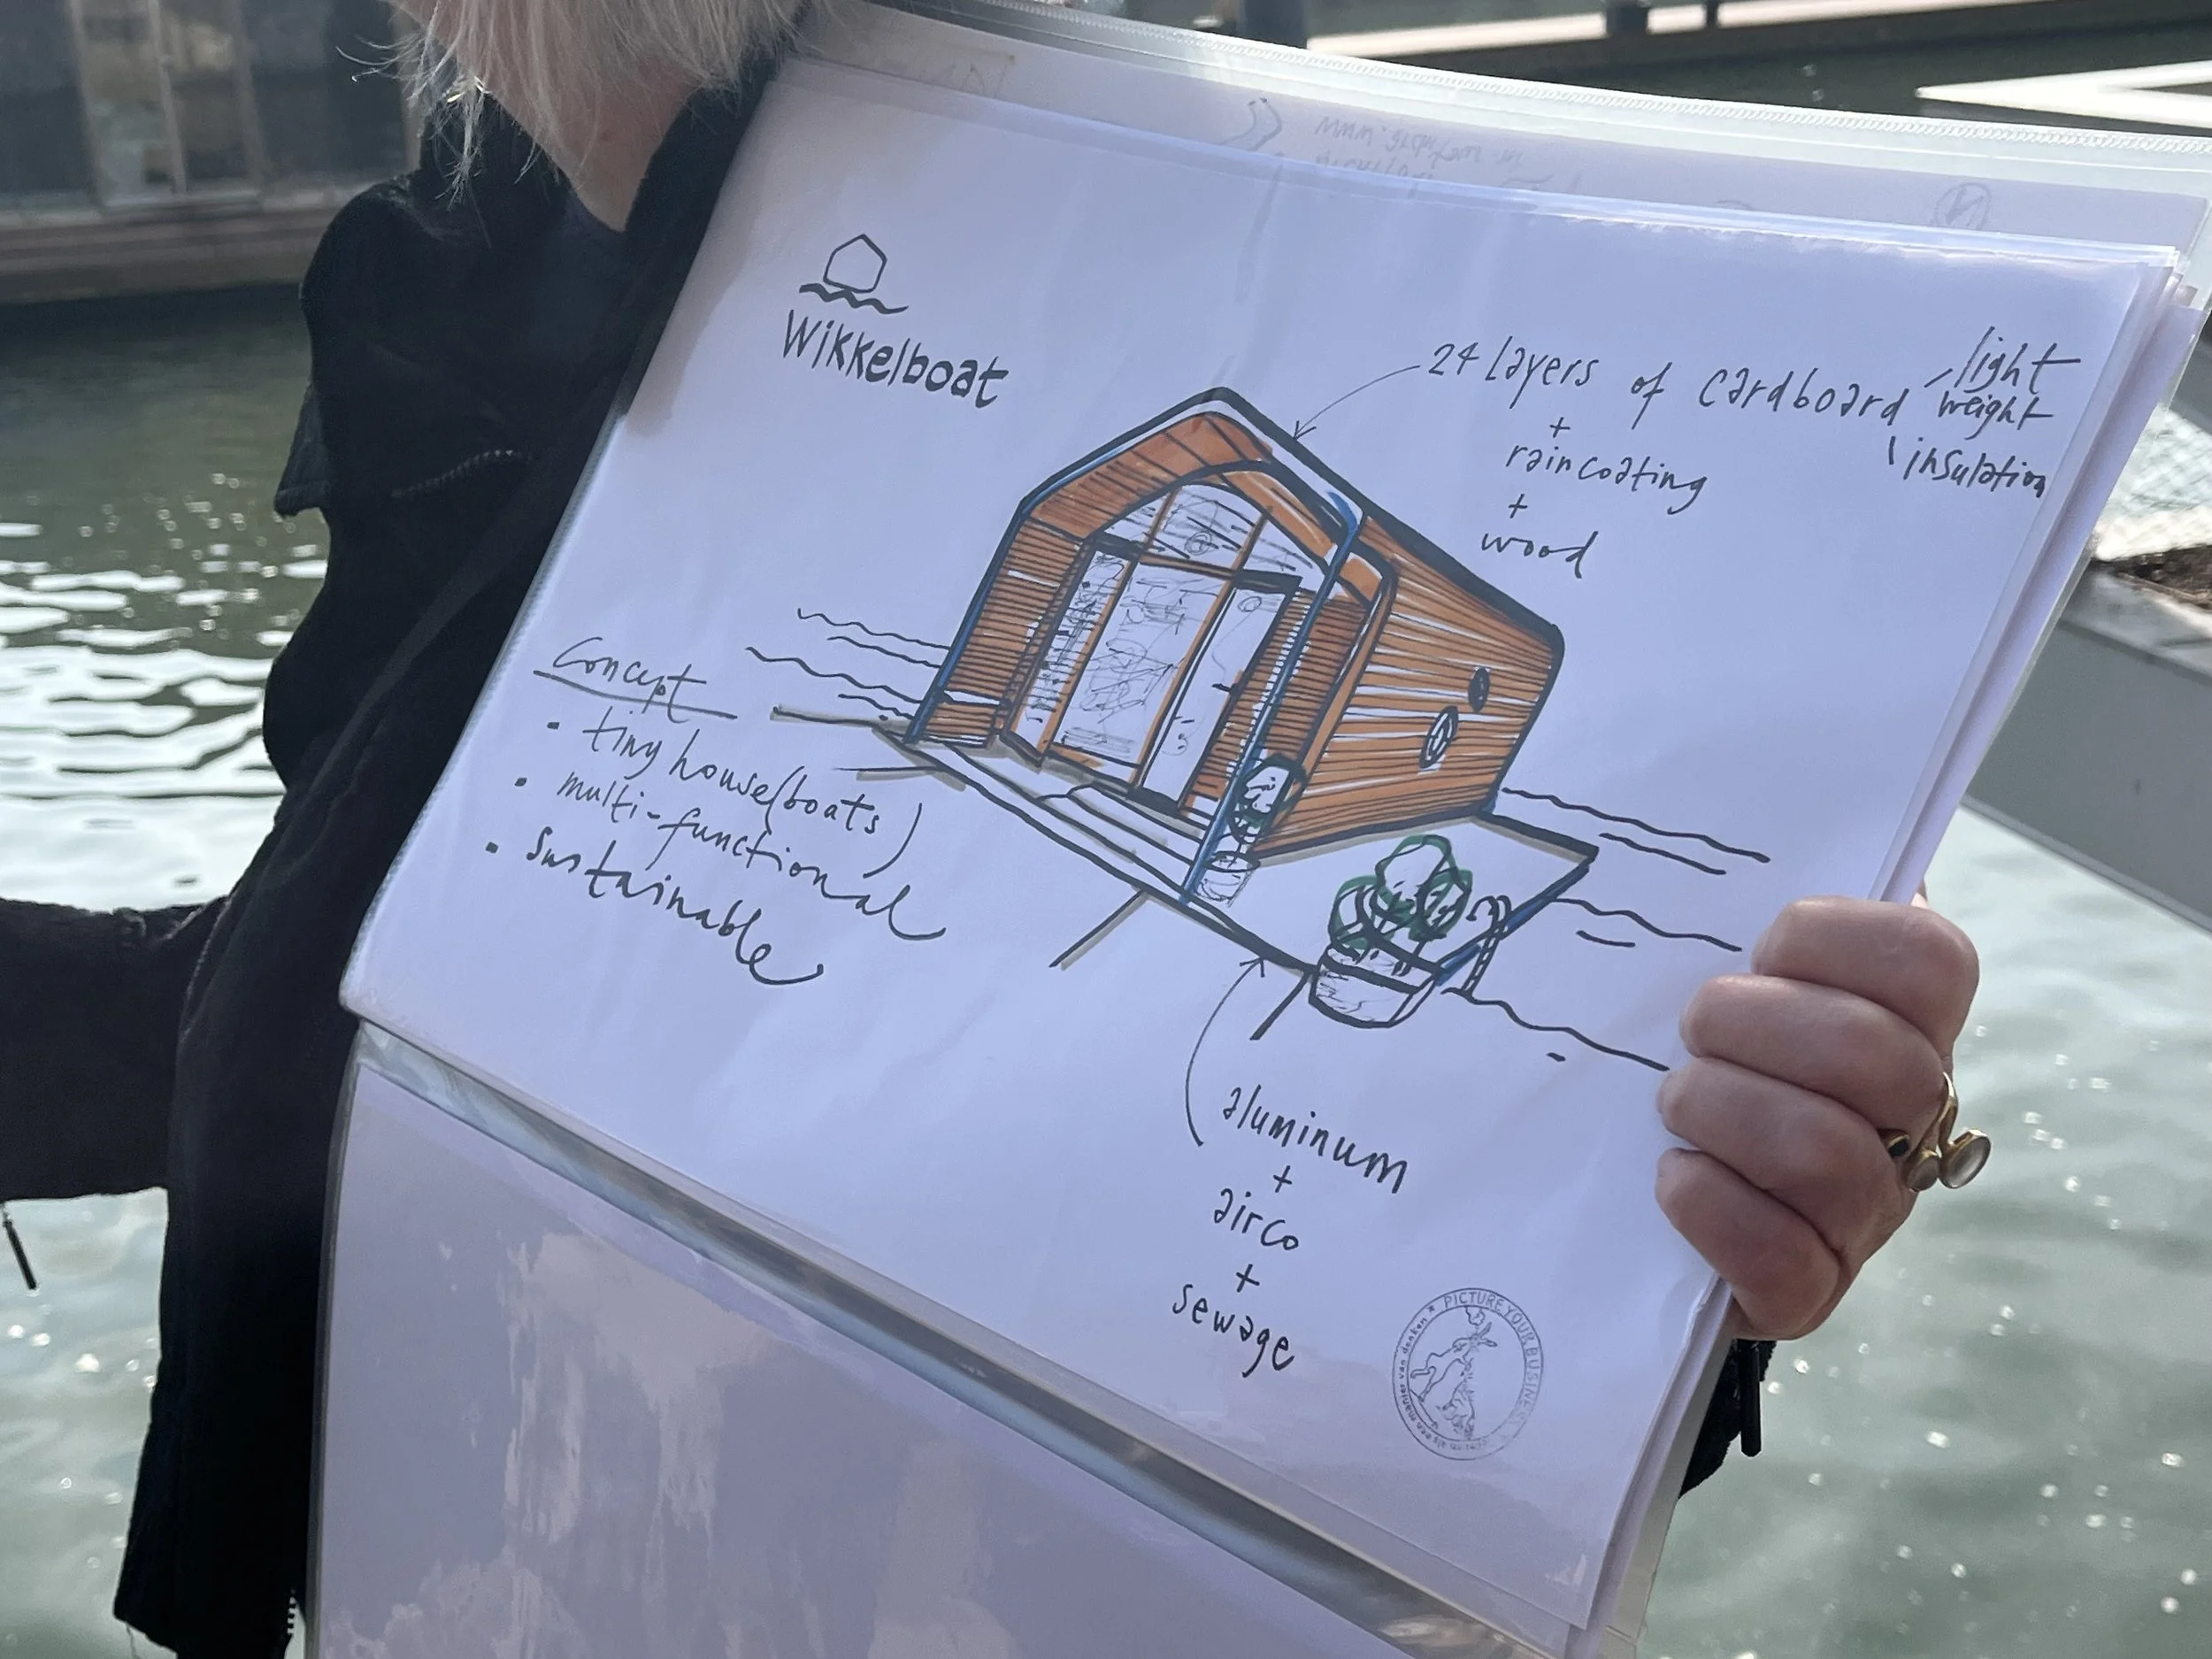 Wikkelboat
24 layers of cardboard
light
weight
insulation
+
raincoating
+
wood
Concept
• tiny house(boats)
• multi-functional
• Sustainable
aluminum
+
airco
+
sewage
* PICTURE YOUR BUSINESS
als een manier van denken